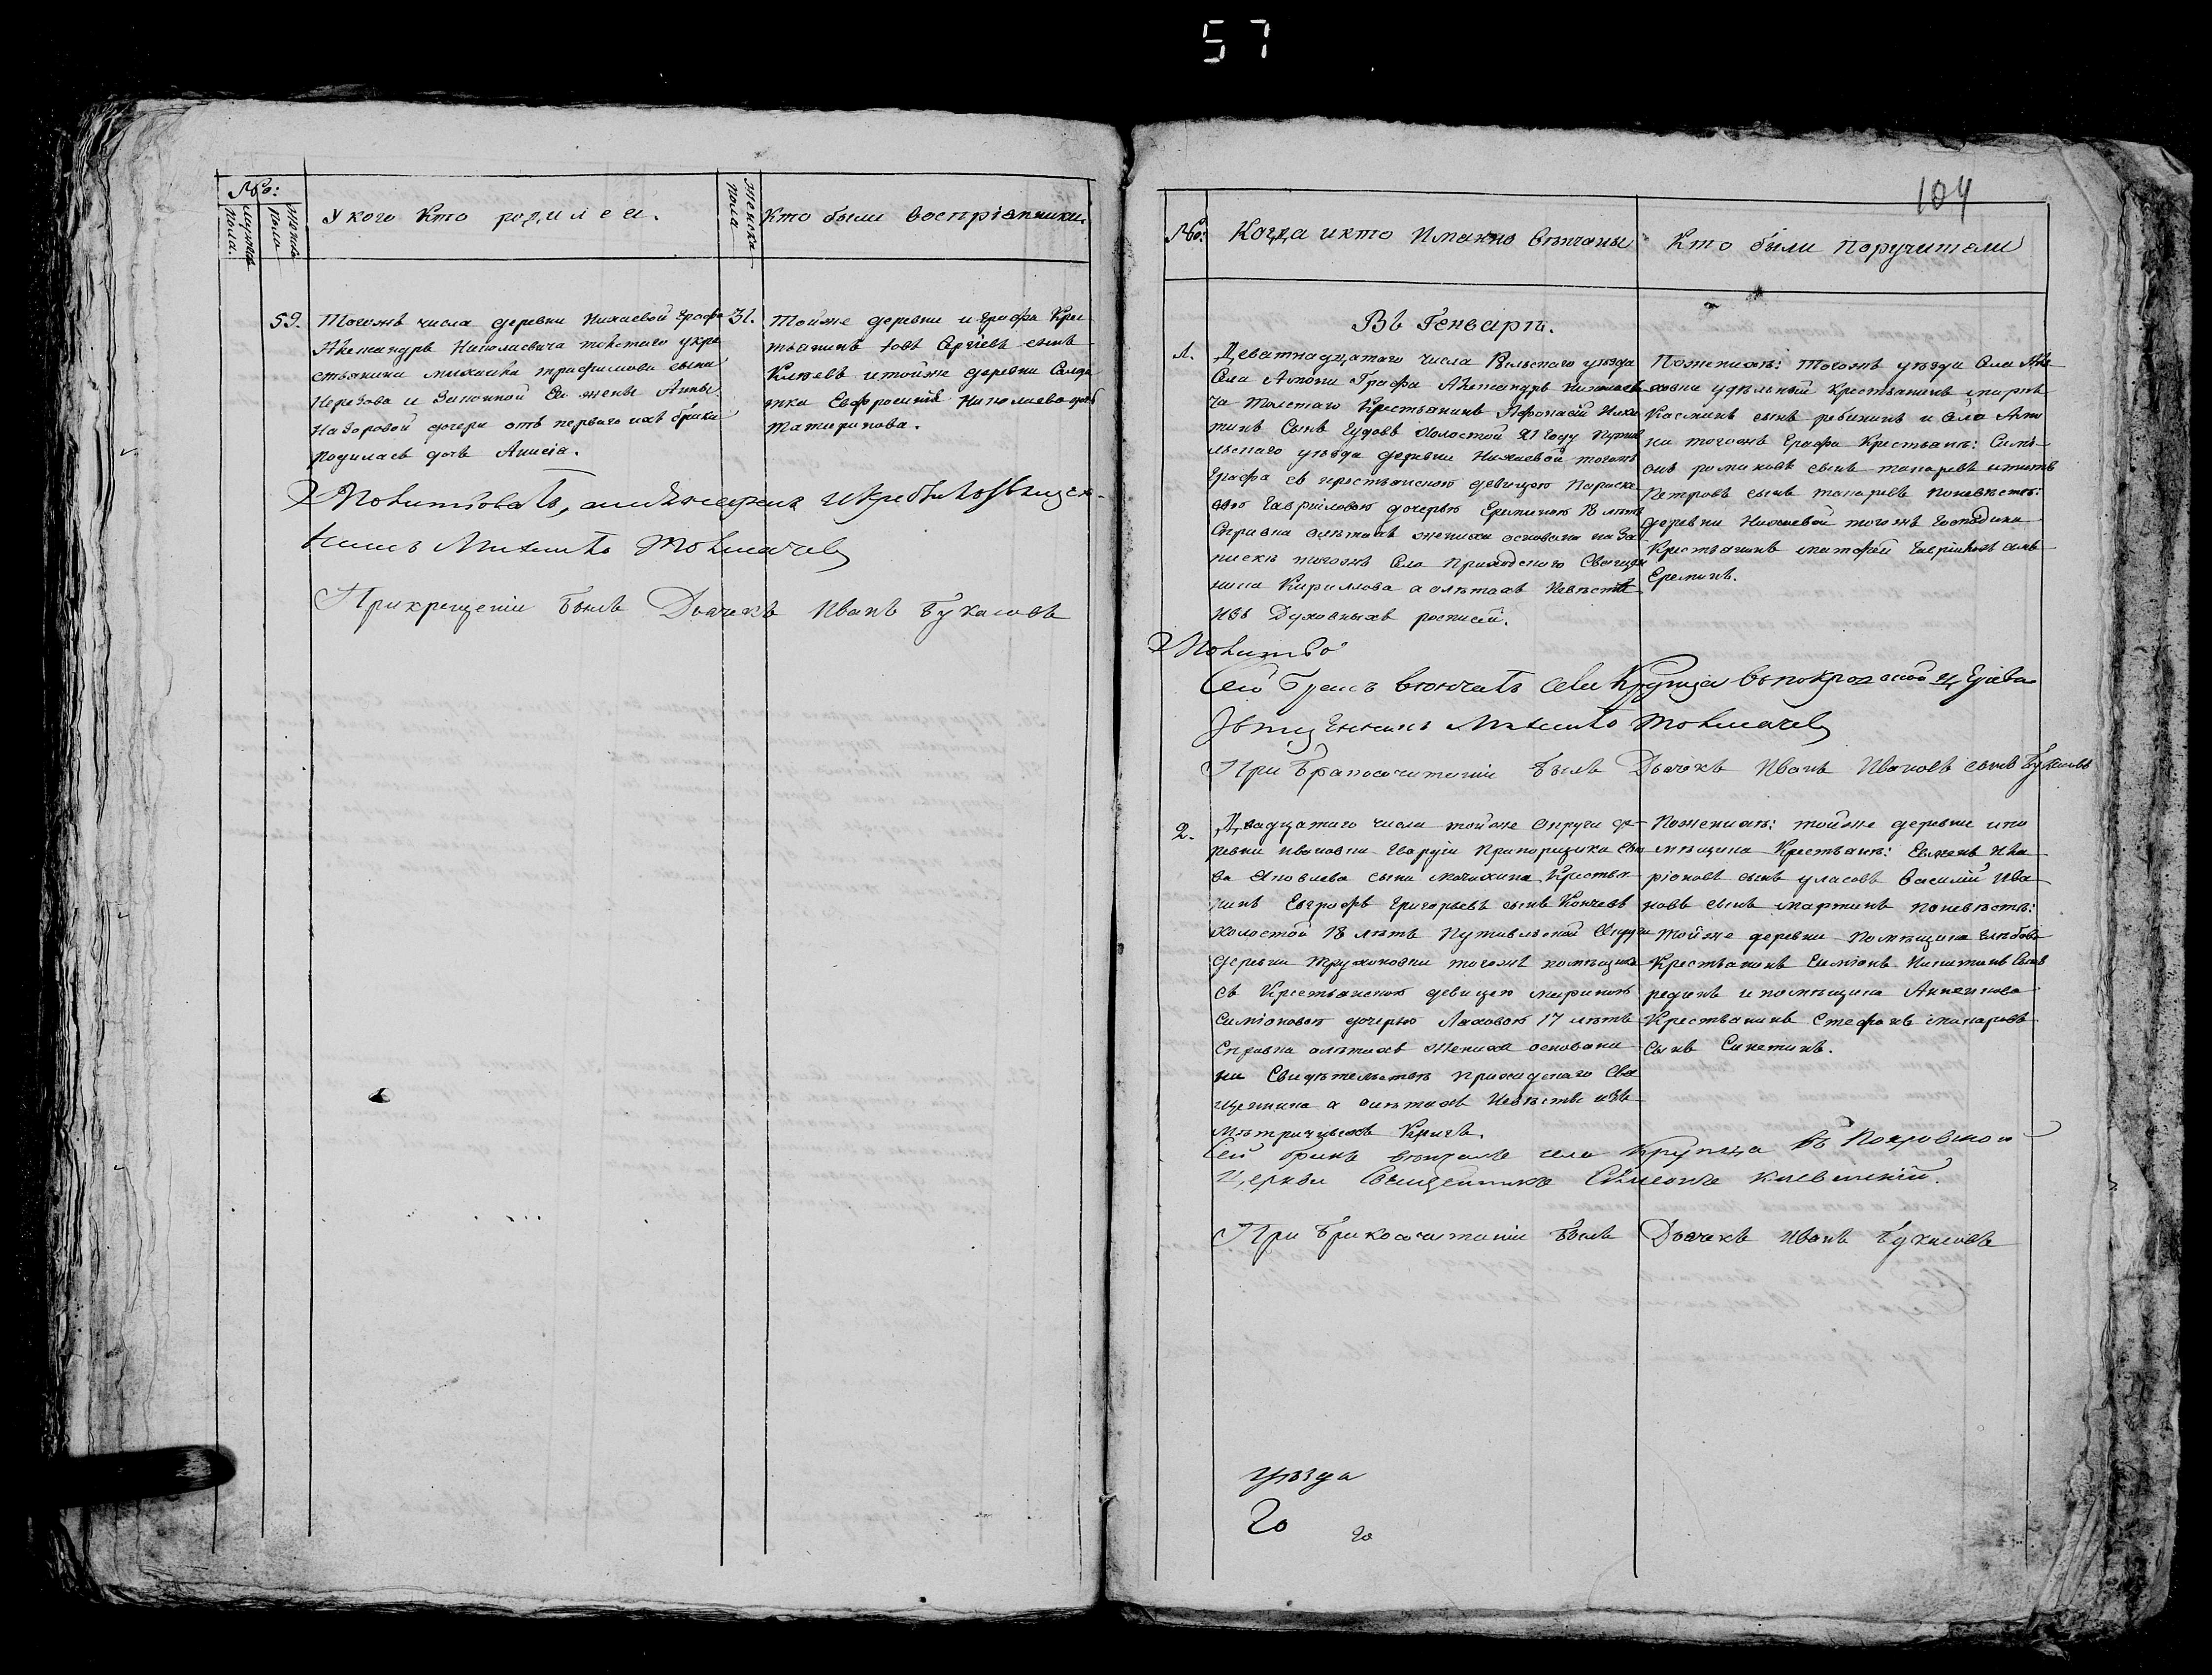 57
№:
мужеска пола.
женска пола
У кого кто родился.
женска пола
Кто были воспріемники.
59.
Тогожъ числа деревни Нихаевой Графа
Александръ Николаевича толстаго укре
стьянина михаила трафимова сына
и Законной Ея жены Анны
Назаровой дочери отъ перваго ихъ брака
родилась дочь Анисія.
31.
Тойже деревни и Графа Крес
тьянинъ Іовъ Сергіевъ сынъ
итойже деревни Солда
тка Евфросинія Николаева дочь
Молитвовалъ, имя нарекъ и крестилъ священ-
никъ Михаилъ Толмачевъ
При крещеніи былъ Дьячекъ Иванъ Букасовъ
104
№:
Когда икто Имянно венчаны
Кто были поручители
Въ Генваръ.
1.
Девятнадцатаго числа Рыльскаго уезда
Села Амони Графа Александръ Николаеви
ча Толстаго Крестьянинъ Афонасій Ники
тинъ Сынъ Гудовъ Холостой 21 году Путив
льскаго уезда деревни Нихаевой тогожъ
Графа съ крестьянскою девицею Параске
вою Гавриловою дочерью Ереминою 18 летъ
Справка олетахъ жениха основана на За
писке тогожъ Села Приходскаго Священ
ника Кириллова а олетахъ Невесты
изъ Духовныхъ росписей.
По женихе: Тогожъ уезда Села
удельный Крестьянинъ
Касминъ сынъ и Села Амо
ни тогожъ Графа Крестьяне: Симі-
онъ романовъ сынъ токаревъ ититъ
Петровъ сынъ токаревъ поневесте:
деревни Нихаевой тогожъ Господина
Крестьянинъ матфей Гавриловъ сынъ
Ереминъ.
Молитво
Сей Бракъ венчалъ села Крупца въ покровской церкви
Священникъ Михаилъ Толмачевъ
При Бракосочитаніи былъ Дьячекъ Иванъ Ивановъ сынъ Букасовъ
2.
Двадцатаго числа тойже Округи де-
ревни ивановки
Яковлева сына Крестья
нинъ Евграфъ Григорьевъ сынъ
холостой 18 летъ Путивльской Округи
деревни Трухоновки тогожъ помещика
съ Крестьянскою девицею мариною
Симіоновою дочерью Ляховою 17 летъ
Справка олетахъ жениха основана
на Свидетельстве приходскаго Свя
щенника а олетахъ Невесты изъ
Метрическихъ Книгъ.
Поженихе: тойже деревни ипо
мещика Крестьяне:
ріоновъ сынъ уласовъ Василий Ива
новъ сынъ мартинъ поневесте:
Тойже деревни Помещика Глебова
Крестьянинъ Симіонъ Никитинъ Сынъ
рединъ ипомещика Анненкова
Крестьянинъ Стефанъ макаровъ
Сынъ Синетинъ.
Сей бракъ венчалъ села Крупца въ Покровской
Церкви Священникъ Симеонъ Киевский.
При Бракосочитаніи былъ Дьячекъ Иванъ Букасовъ
уезда
20
20